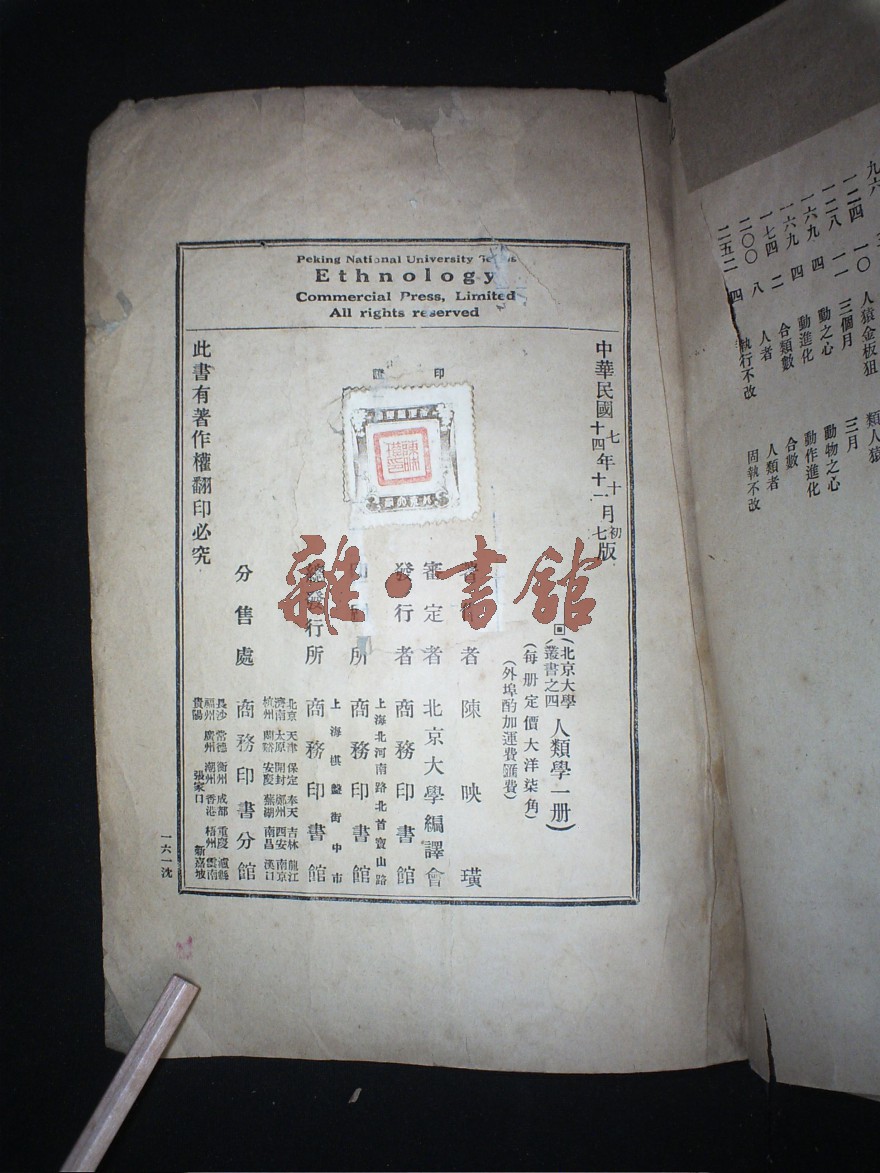 Peking National University
Ethnology
Commercial Press, Limited
All rights reserved
中華民國
七年十月初版
十四年十一月七版
(北京大學叢書之四 人類學一册)
(每册定價大洋柒角)
(外埠酌加運費匯費)
者 陳映璜
審定者 北京大學編譯會
發行者 商務印書館
上海北河南路北首寶山路
印刷所 商務印書館
上海棋盤街中市
總發行所 商務印書館
分售處 商務印書分館
北京 天津 保定 奉天 吉林 龍江
濟南 太原 開封 鄭州 西安 南京
杭州 蘭谿 安慶 蕪湖 南昌 漢口
長沙 常德 衡州 成都 重慶 瀘縣
福州 廣州 潮州 香港 梧州 雲南
貴陽 張家口 新嘉坡
此書有著作權翻印必究
一六一沈
雜·書館
九六
一二四 一〇 人猿金板狙 類人猿
一二八 一一 三個月 三月
一六九 四 動之心 動物之心
一六九 四 動進化 動作進化
一七四 二 合類數 合數
二〇〇 八 人者 人類者
二五二 四 執行不改 固執不改